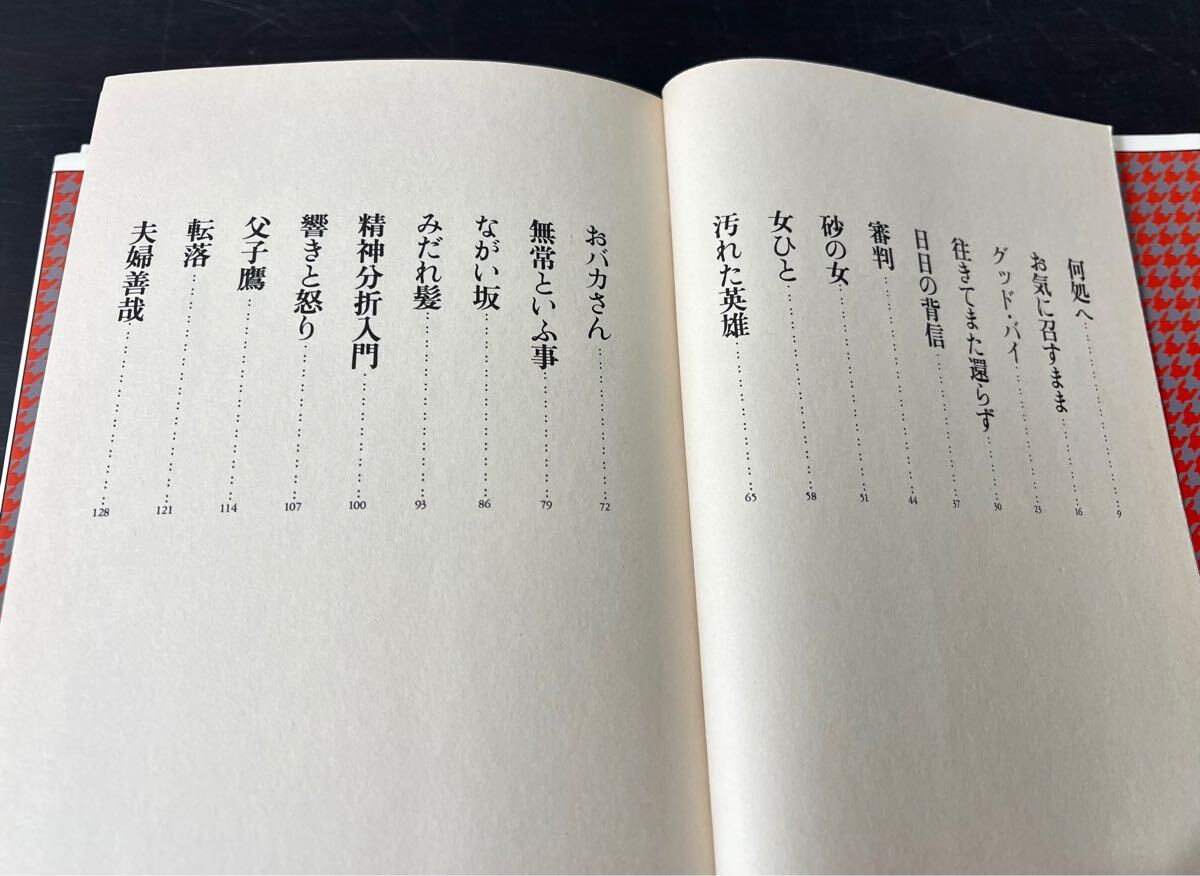 何処へ……………………9
お気に召すまま……………………16
グッド・バイ……………………23
往きてまた還らず……………………30
日日の背信……………………37
審判……………………44
砂の女……………………51
女ひと……………………58
汚れた英雄……………………65
おバカさん……………………72
無常といふ事……………………79
ながい坂……………………86
みだれ髪……………………93
精神分折入門……………………100
響きと怒り……………………107
父子鷹……………………114
転落……………………121
夫婦善哉……………………128